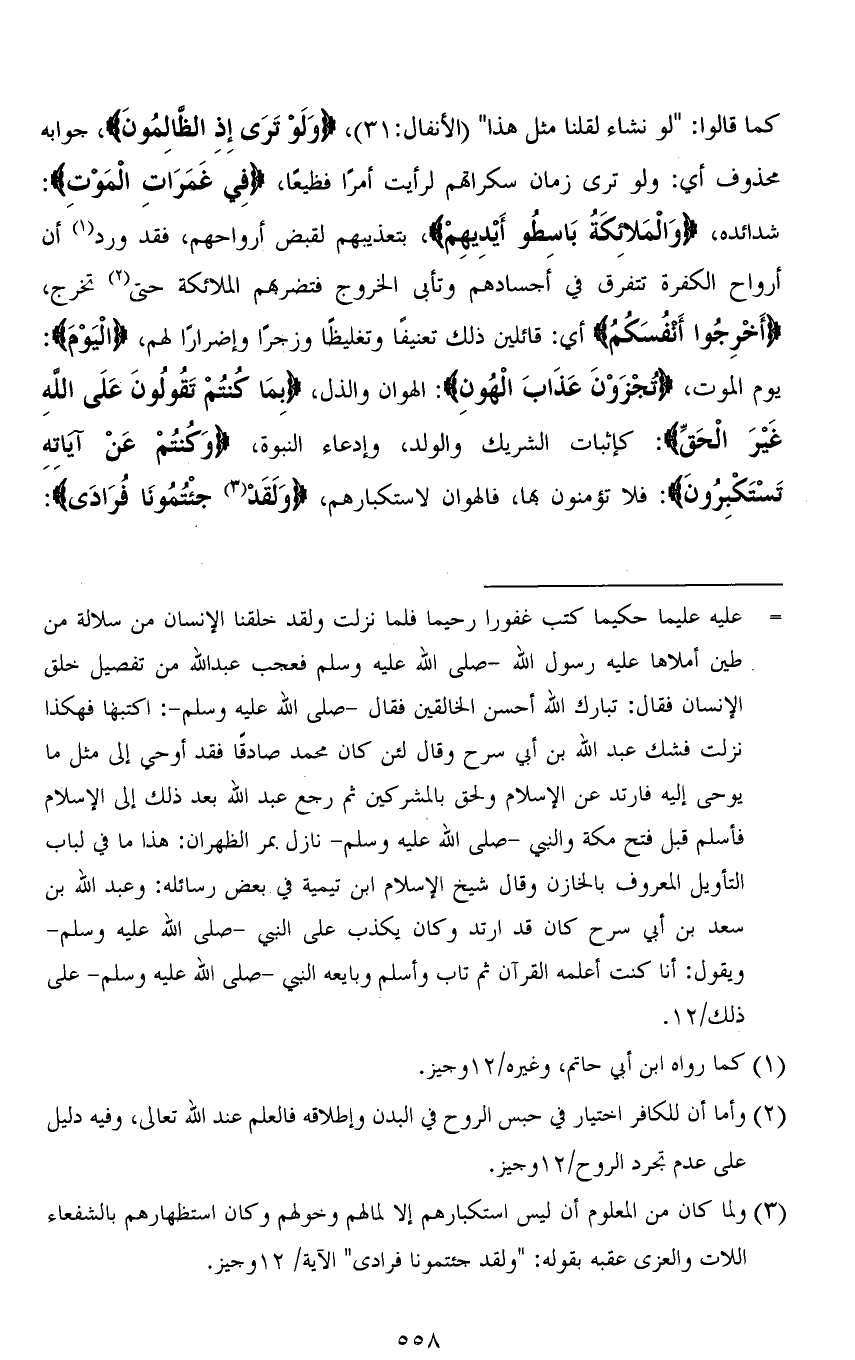 كما قالوا: "لو نشاء لقلنا مثل هذا" (الأنفال:٣١)، ﴿وَلَوْ تَرَى إِذِ الظَّالِمُونَ﴾، جوابه
محذوف أي: ولو ترى زمان سكراتهم لرأيت أمرًا فظيعًا، ﴿فِي غَمَرَاتِ الْمَوْتِ﴾:
شدائده، ﴿وَالْمَلائِكَةُ بَاسِطُو أَيْدِيهِمْ﴾، بتعذيبهم لقبض أرواحهم، فقد ورد(١) أن
أرواح الكفرة تتفرق في أجسادهم وتأبى الخروج فتضربهم الملائكة حتى(٢) تخرج،
﴿أَخْرِجُوا أَنْفُسَكُمُ﴾ أي: قائلين ذلك تعنيفًا وتغليظًا وزجرًا وإضرارًا لهم، ﴿الْيَوْمَ﴾:
يوم الموت، ﴿تُجْزَوْنَ عَذَابَ الْهُونِ﴾: الهوان والذل، ﴿بِمَا كُنتُمْ تَقُولُونَ عَلَى اللَّهِ
غَيْرَ الْحَقِّ﴾: كإثبات الشريك والولد، وإدعاء النبوة، ﴿وَكُنْتُمْ عَنْ آيَاتِهِ
تَسْتَكْبِرُونَ﴾: فلا تؤمنون بها، فالهوان لاستكبارهم، ﴿وَلَقَدْ(٣) جِئْتُمُونَا فُرَادَى﴾:
= عليه عليما حكيما كتب غفورا رحيما فلما نزلت ولقد خلقنا الإنسان من سلالة من
طين أملاها عليه رسول الله -صلى الله عليه وسلم فعجب عبدالله من تفصيل خلق
الإنسان فقال: تبارك الله أحسن الخالقين فقال -صلى الله عليه وسلم-: اكتبها فهكذا
نزلت فشك عبد الله بن أبي سرح وقال لئن كان محمد صادقًا فقد أوحي إلى مثل ما
يوحى إليه فارتد عن الإسلام ولحق بالمشركين ثم رجع عبد الله بعد ذلك إلى الإسلام
فأسلم قبل فتح مكة والنبي -صلى الله عليه وسلم- نازل بمر الظهران: هذا ما في لباب
التأويل المعروف بالخازن وقال شيخ الإسلام ابن تيمية في بعض رسائله: وعبد الله بن
سعد بن أبي سرح كان قد ارتد وكان يكذب على النبي -صلى الله عليه وسلم-
ويقول: أنا كنت أعلمه القرآن ثم تاب وأسلم وبايعه النبي -صلى الله عليه وسلم- على
ذلك/١٢.
(١) كما رواه ابن أبي حاتم، وغيره/١٢وجيز.
(٢) وأما أن للكافر اختيار في حبس الروح في البدن وإطلاقه فالعلم عند الله تعالى، وفيه دليل
على عدم تجرد الروح/١٢وجيز.
(٣) ولما كان من المعلوم أن ليس استكبارهم إلا لمالهم وخولهم وكان استظهارهم بالشفعاء
اللات والعزى عقبه بقوله: "ولقد جئتمونا فرادى" الآية/ ١٢وجيز.
٥٥٨